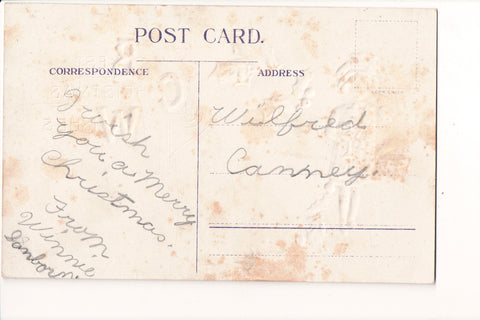 POST CARD.
CORRESPONDENCE
ADDRESS
I wish
you a Merry
Christmas.
From
Winnie
Sanborn.
Wilfred
Canney.